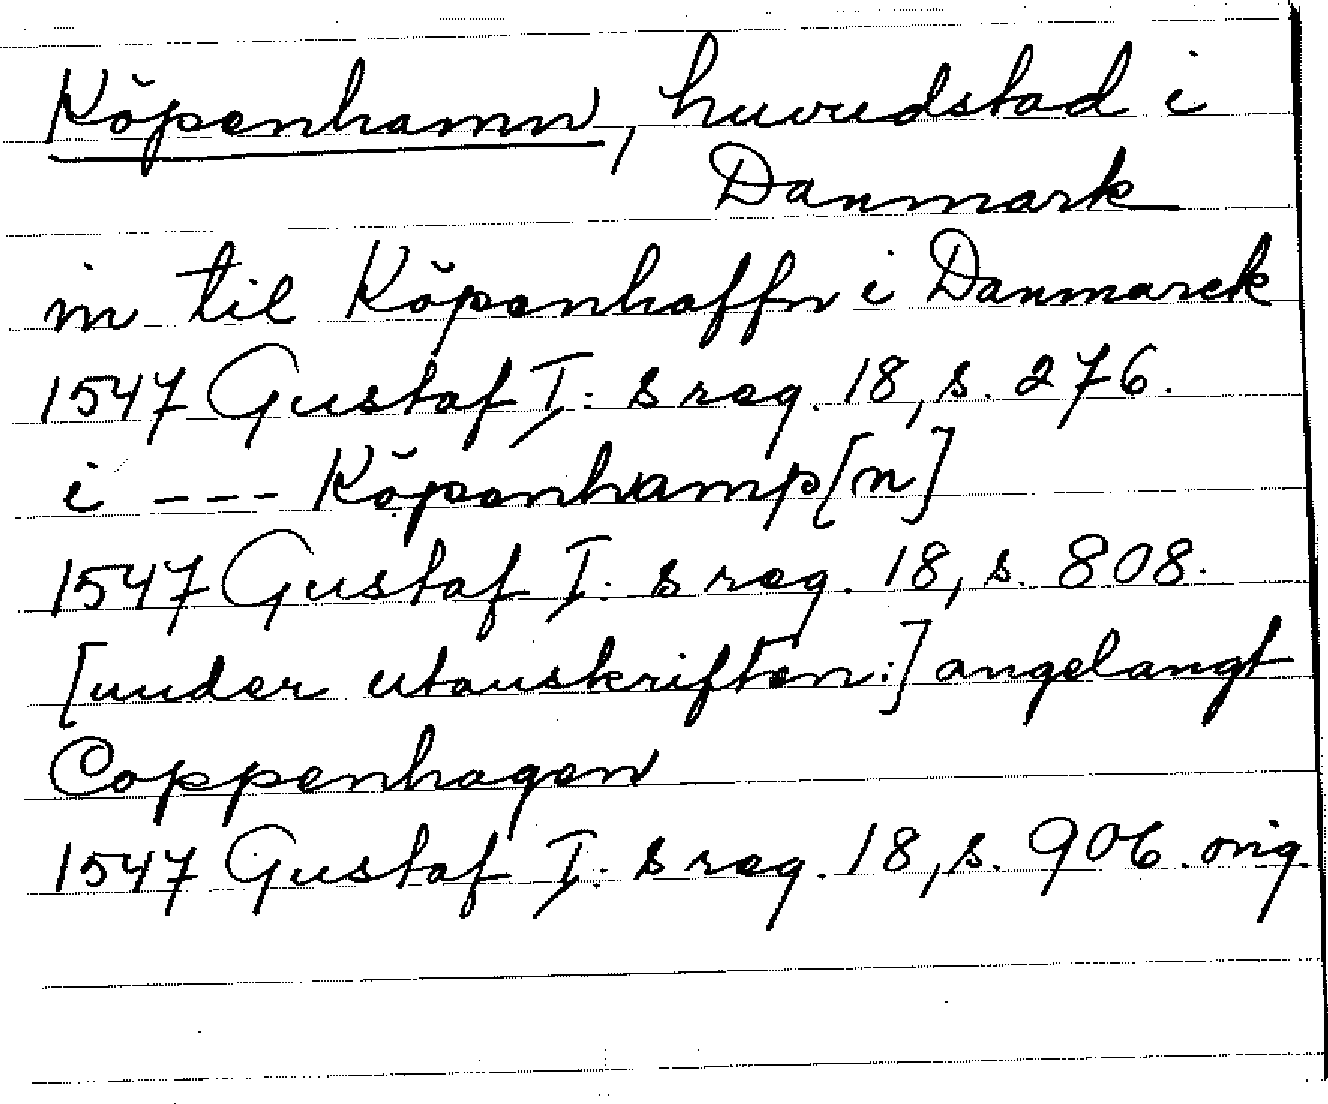 Köpenhamn, huvudstad i
Danmark
in til Köpenhaffn i Danmarck
1547 Gustaf I:s reg. 18, s. 276.
i --- Köpenhamp[n]
1547 Gustaf I:s reg. 18, s. 808.
[under utanskriften:] angelangt
Coppenhagen
1547 Gustaf I:s reg. 18, s. 906. orig.